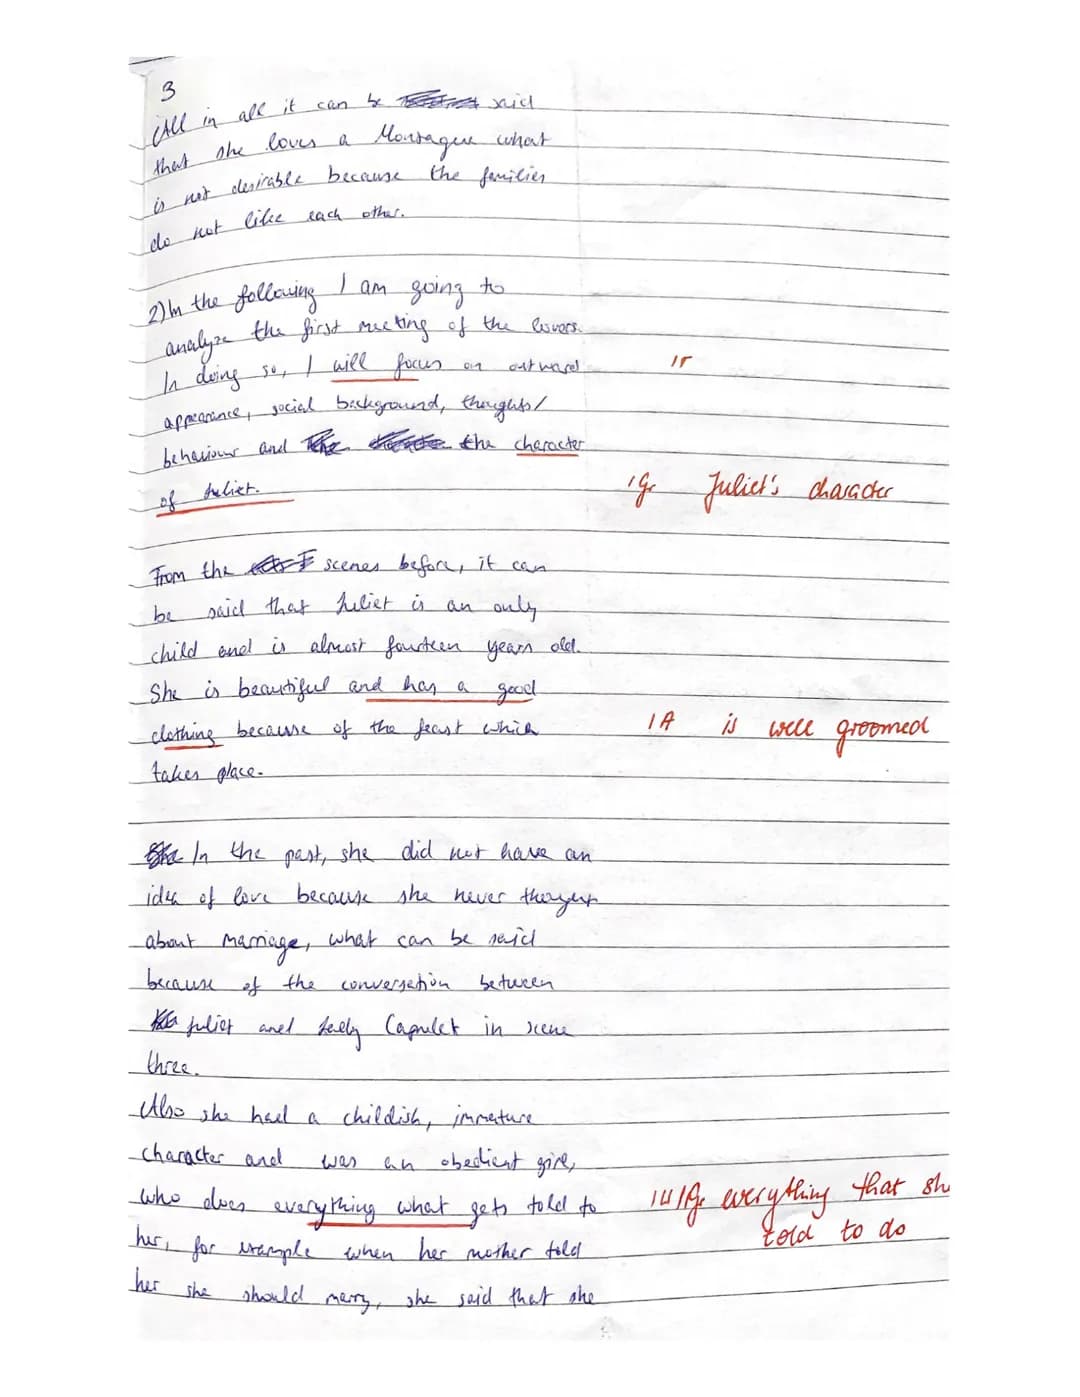 3
All in all it can be said
that she loves a Montague what
is not desirable because the families
do not like each other.
2) In the following I am going to
analyze the first meeting of the lovers.
In doing so, I will focus on outward
appearance, social background, thoughts/
behaviour and the character
of Juliet.
1 Gr Juliet's character
From the scenes before, it can
be said that Juliet is an only
child and is almost fourteen years old.
She is beautiful and has a good
clothing because of the feast which
1 A is well groomed
takes place.
In the past, she did not have an
idea of love because she never thought
about marriage, what can be said
because of the conversation between
Juliet and Lady Capulet in scene
three.
Also she had a childish, immature
character and was an obedient girl,
who does everything what gets told to
everything that sh
told to do
her, for example when her mother told
her she should marry, she said that she